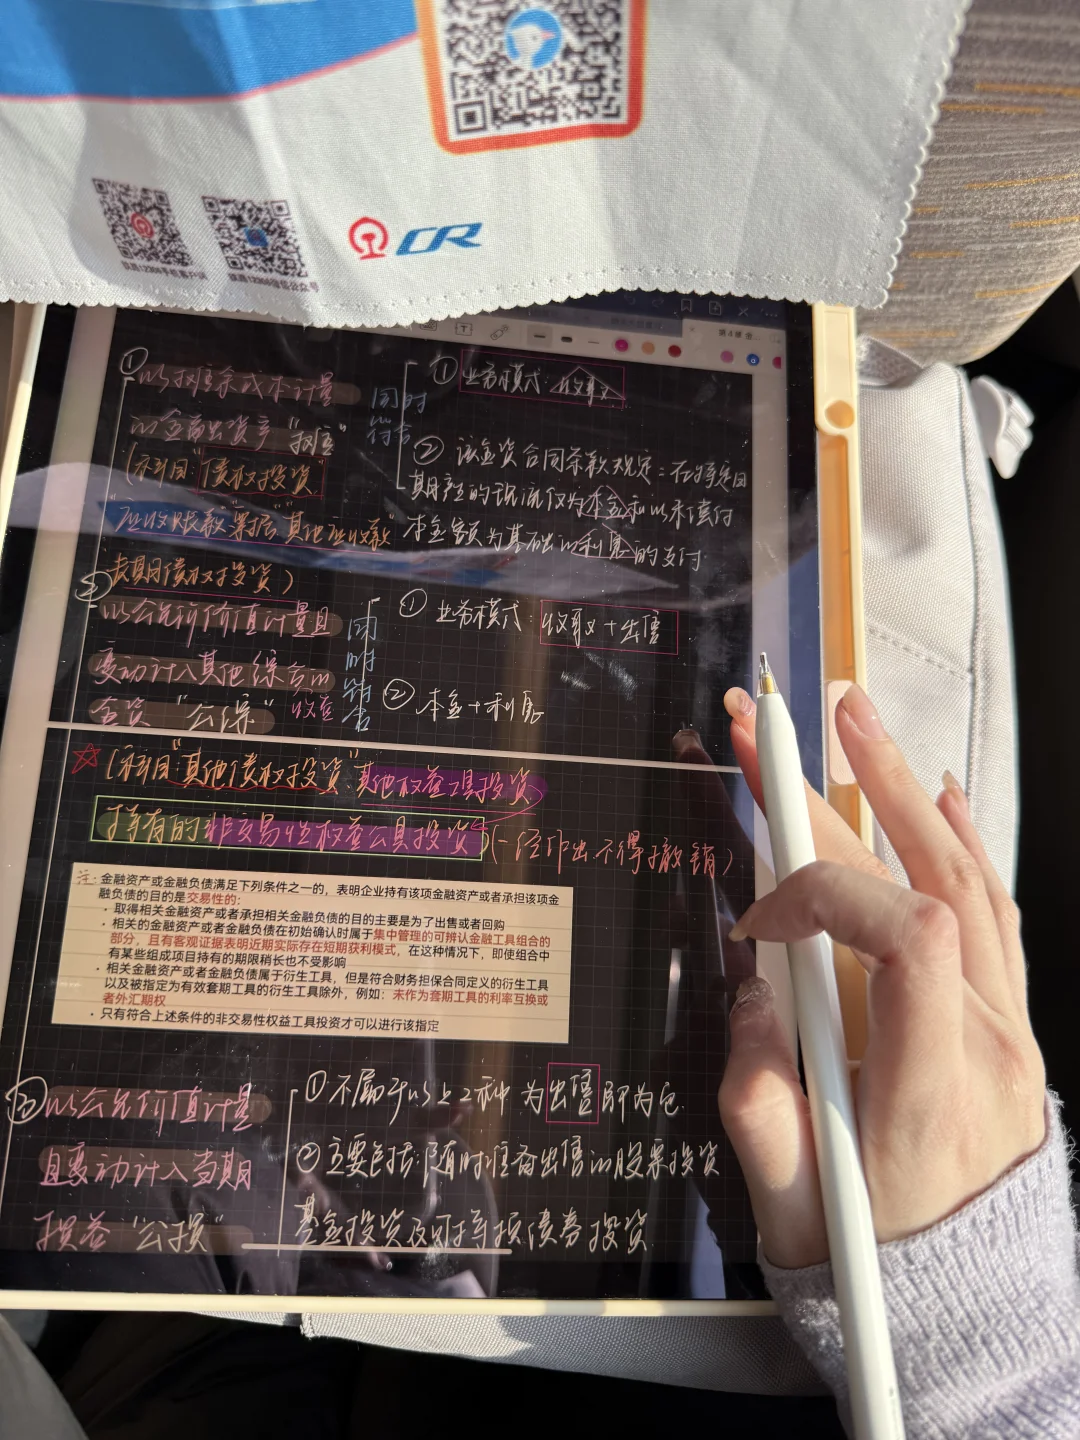 CR
T
①以摊余成本计量
的金融资产"摊余"
(科目"债权投资"
"应收账款""其他应收款"
长期债权投资)
同时
符合
①业务模式:收取
②该金资合同条款规定:在特定日
期产生的现流仅为本金和以未偿付
本金额为基础的利息的支付.
②
以公允价值计量且
变动计入其他综合
金资"公综"收益
同时符合
①业务模式:收取+出售
②本金+利息
(科目:"其他债权投资"其他权益工具投资
持有的非交易性权益工具投资)(一经作出不得撤销)
注:金融资产或金融负债满足下列条件之一的,表明企业持有该项金融资产或者承担该项金
融负债的目的是交易性的:
·取得相关金融资产或者承担相关金融负债的目的主要是为了出售或者回购
·相关的金融资产或者金融负债在初始确认时属于集中管理的可辨认金融工具组合的
部分,且有客观证据表明近期实际存在短期获利模式,在这种情况下,即使组合中
有某些组成项目持有的期限稍长也不受影响
·相关金融资产或者金融负债属于衍生工具,但是符合财务担保合同定义的衍生工具
以及被指定为有效套期工具的衍生工具除外,例如:未作为套期工具的利率互换或
者外汇期权
·只有符合上述条件的非交易性权益工具投资才可以进行该指定
③以公允价值计量
且变动计入当期
损益"公损"
①不属于以上2种 为出售即为它.
②主要包括:随时准备出售的股票投资
基金投资及可转换债券投资